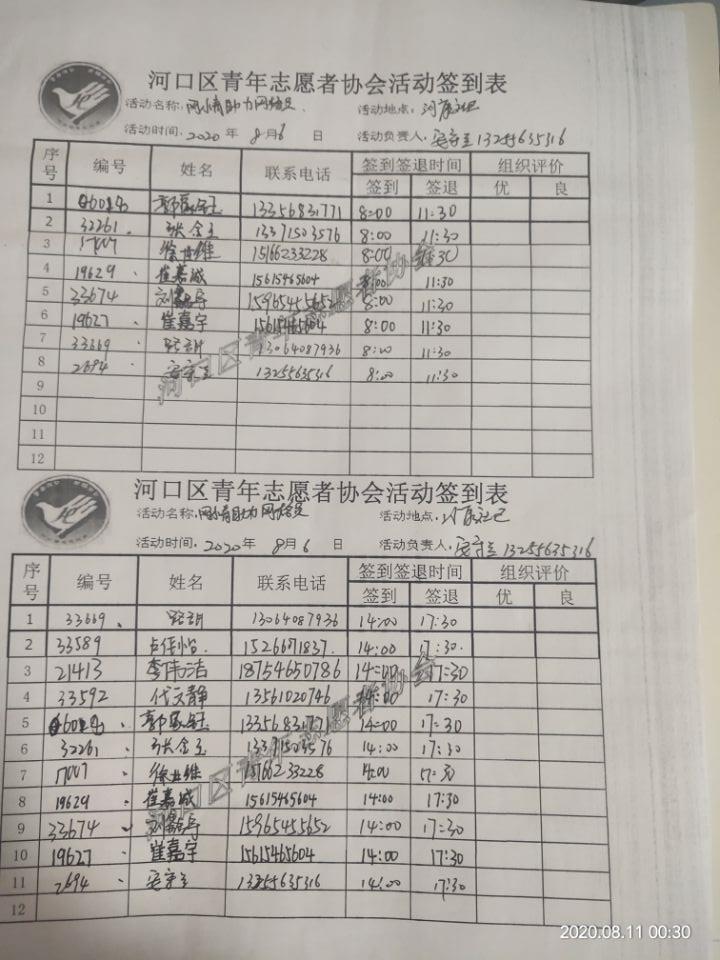 河口区青年志愿者协会活动签到表
活动名称: 网情助力网络员 活动地点:
活动时间: 2020 年 8月6 日 活动负责人: 13255635316
序号 编号 姓名 联系电话 签到签退时间 组织评价
签到 签退 优 良
1 13356831771 8:00 11:30
2 32261 张金玉 13371503576 8:00 11:30
3 17007 徐业维 15166233228 8:00 11:30
4 19629 崔嘉诚 15615465604 8:00 11:30
5 33674 15965455652 8:00 11:30
6 19627 崔嘉宇 15615465604 8:00 11:30
7 33669 13064087936 8:00 11:30
8 2694 安守玉 13255635316 8:00 11:30
9
10
11
12
河口区青年志愿者协会
河口区青年志愿者协会活动签到表
活动名称: 网情助力网络员 活动地点:
活动时间: 2020 年 8月6 日 活动负责人: 13255635316
序号 编号 姓名 联系电话 签到签退时间 组织评价
签到 签退 优 良
1 33669 13064087936 14:00 17:30
2 33589 1526671837 14:00 17:30
3 21413 李伟洁 18754650786 14:00 17:30
4 33592 代文静 13561020746 14:00 17:30
5 13356831771 14:00 17:30
6 32261 张金玉 13371503576 14:00 17:30
7 17007 徐业维 15166233228 14:00 17:30
8 19629 崔嘉诚 15615465604 14:00 17:30
9 33674 15965455652 14:00 17:30
10 19627 崔嘉宇 15615465604 14:00 17:30
11 2694 安守玉 13255635316 14:00 17:30
12
河口区青年志愿者协会
2020.08.11 00:30